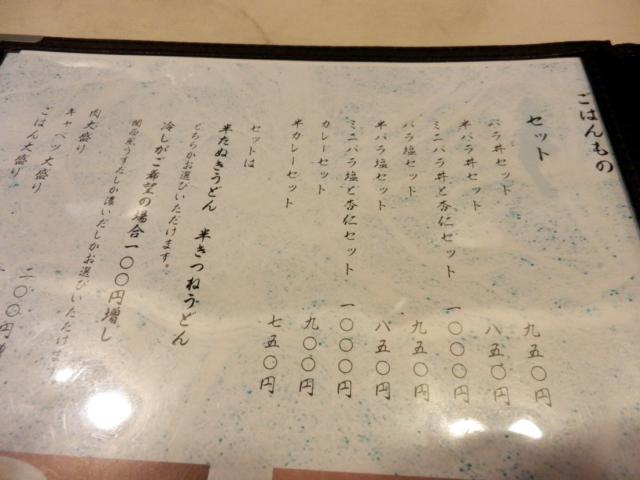 ごはんもの
セット
バラ丼セット 九五〇円
半バラ丼セット 八五〇円
ミニバラ丼と杏仁セット 一〇〇〇円
バラ塩セット 九五〇円
半バラ塩セット 八五〇円
ミニバラ塩と杏仁セット 一〇〇〇円
カレーセット 九〇〇円
半カレーセット 七五〇円
セットは
半たぬきうどん 半きつねうどん
どちらかお選びいただけます。
冷しがご希望の場合一〇〇円増し
関西風うすだしか濃いだしかお選びいただけま
肉大盛り 二〇〇円
キャベツ大盛り
ごはん大盛り